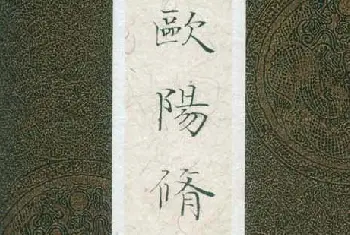 歐陽脩